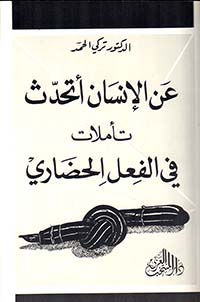 الدكتور تركي الحمد
عَن الإنسَان أتحدّث
تأملات
في الفعل الحضاري
دار المنتخب العربي